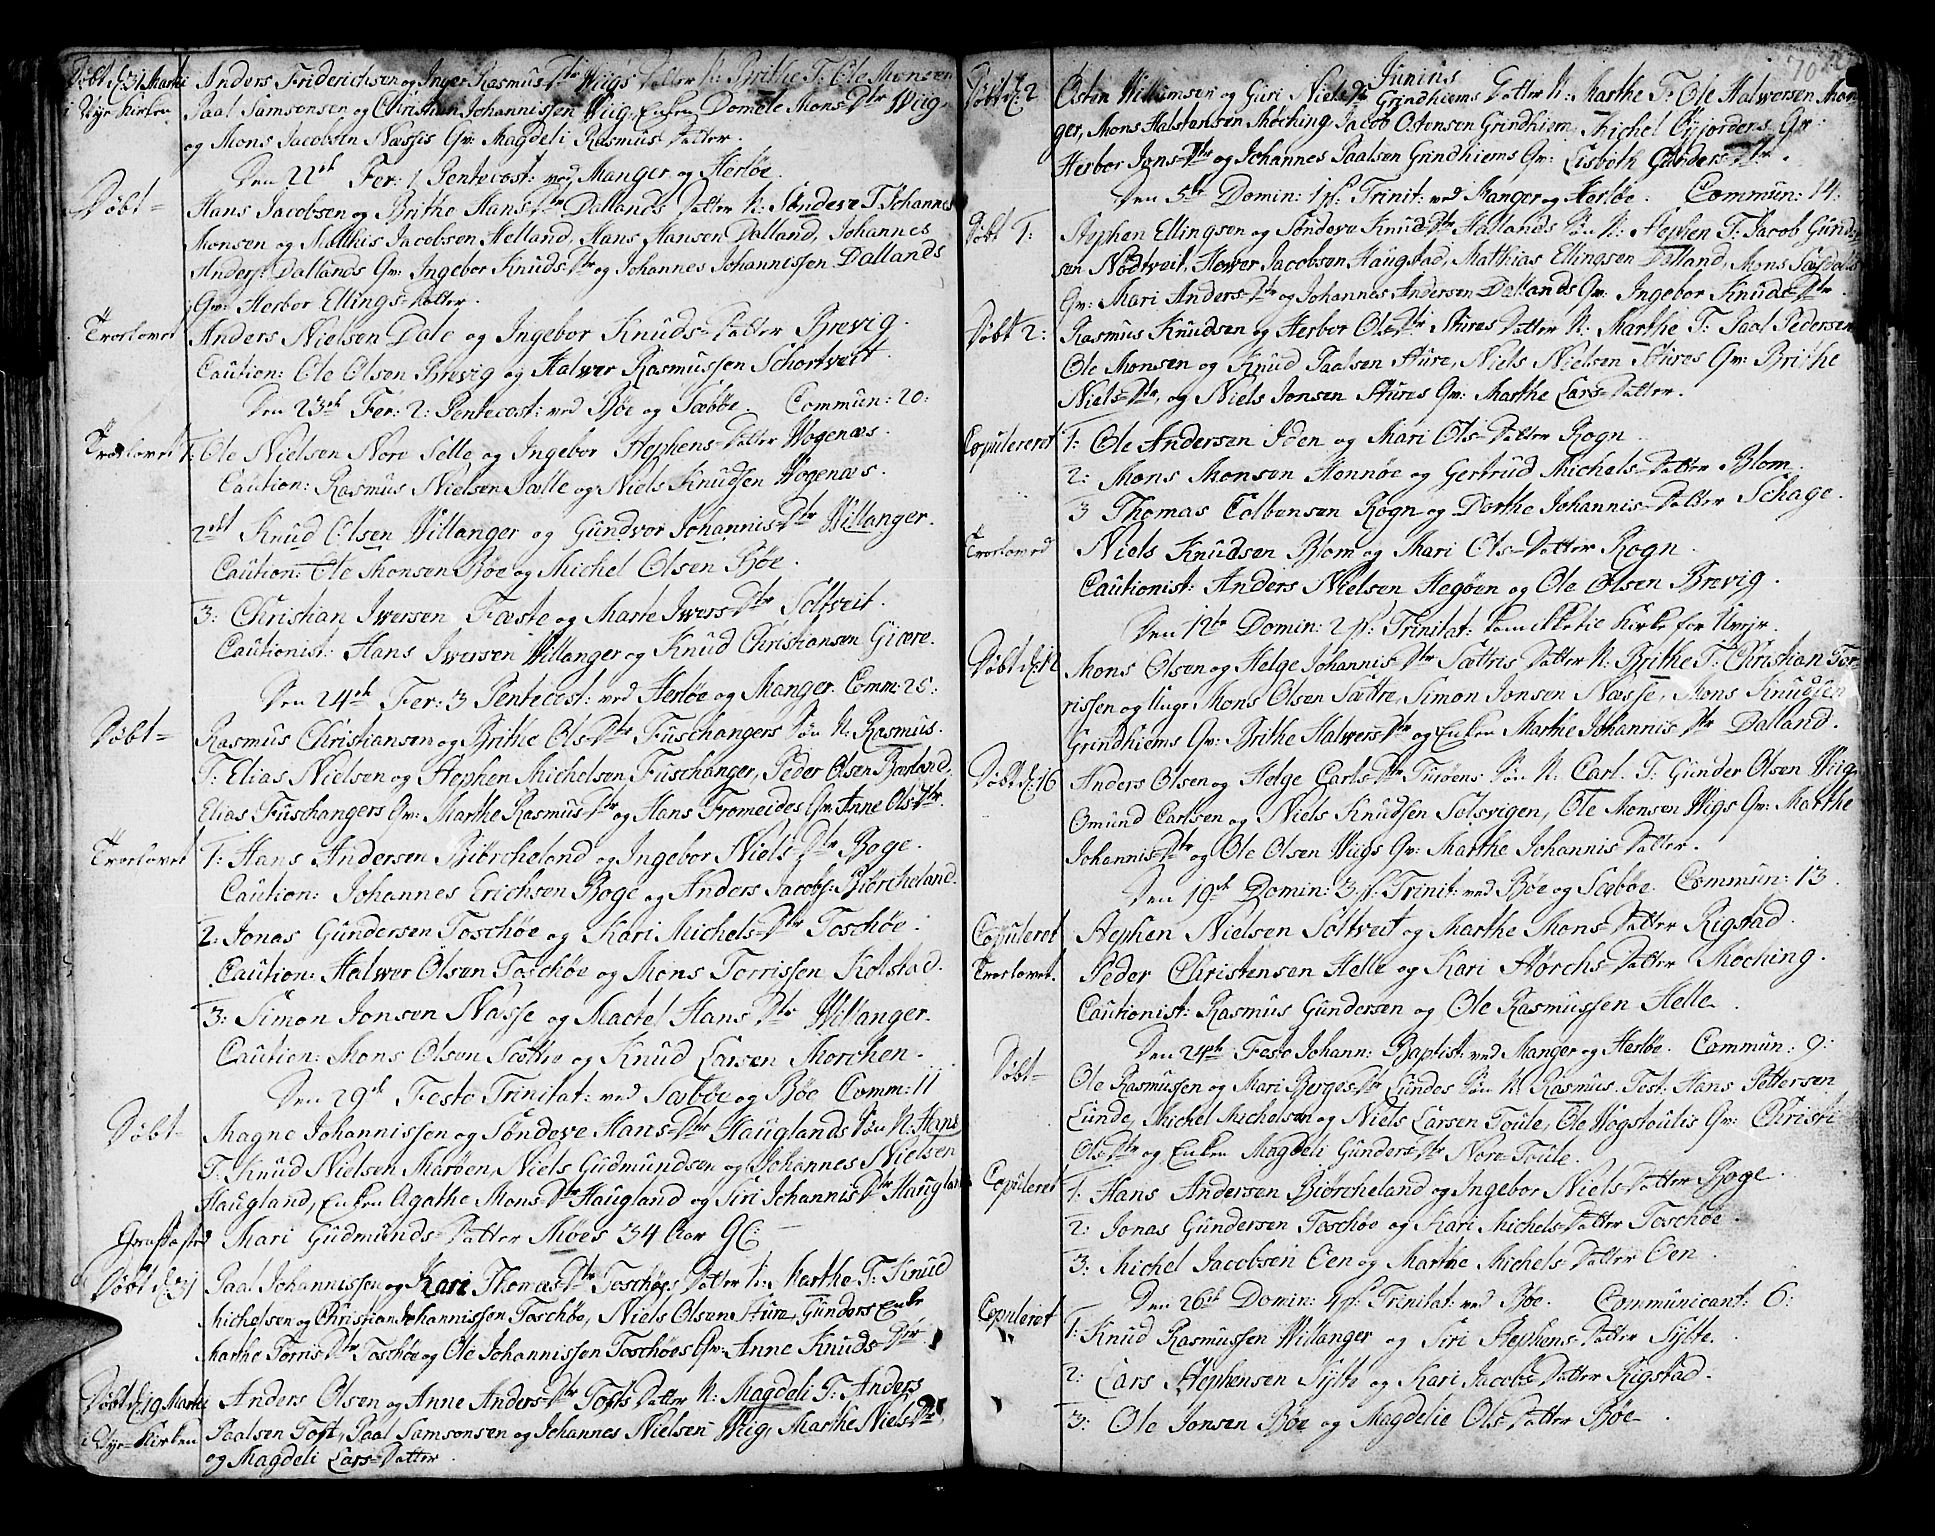 Døbt d: 31 Martii Anders Friderichsen og Inger Rasmus-Dtr Wiigs Datter N: Brithe T: Ole Monsen
i Uje Kirken Paal Samsonsen og Christian Johannissen Wiig, Enken Domole Mons-Dtr Wiig
og Mons Jacobsen Næsses Qv: Magdeli Rasmus Datter.
Den 22de Fer: 1 Pentecost: ved Manger og Herløe.
Døbt Hans Jacobsen og Brithe Hans-Dtr Dallands Datter N: Søndeve T: Johannes
Monsen og Matthis Jacobsen Helland, Hans Hansen Dalland, Johannes
Anders: Dallands Qv: Ingebor Knuds-Dtr og Johannes Johannissen Dallands
Qv: Herbor Ellings-Datter.
Trorlovet Anders Nielsen Dale og Ingebor Knuds-Datter Brevig.
Caution: Ole Olsen Brevig og Halvor Rasmussen Schortveit.
Den 23de Fer: 2: Pentecost: ved Bøe og Sæbøe. Commun: 20:
Trorlovet 1: Ole Nielsen Nore Selle og Ingebor Stephens-Datter Wogenæs.
Caution: Rasmus Nielsen Sælle og Niels Knudsen Wogenæs.
2det Knud Olsen Willanger og Gundvor Johannis-Dtr Willanger.
Caution: Ole Monsen Bøe og Michel Olsen Bøe.
3: Christian Iversen Fæste og Marte Ivers-Dtr Soltveit.
Cautionist: Hans Iversen Willanger og Knud Christiansen Giære.
Den 24de Fer: 3 Pentecost: ved Herløe og Manger. Comm: 25:
Døbt Rasmus Christiansen og Brithe Ols-Dtr Fuschangers Søn N: Rasmus.
T: Elias Nielsen og Stephen Michelsen Fuschanger, Peder Olsen Barland,
Elias Fuschangers Qv: Marthe Rasmus-Dtr og Hans Fromeides Qv: Anne Ols-Dtr.
Trorlovet 1: Hans Andersen Biørcheland og Ingebor Niels-Dtr Boge.
Caution: Johannes Erichsen Boge og Anders Jacobs: Biørcheland.
2: Jonas Gundersen Toschøe og Kari Michels-Dtr Toschøe.
Caution: Halvor Olsen Toschøe og Mons Torrissen Kolstad.
3: Simon Jonsen Næsse og Mactel Hans Dtr Willanger.
Caution: Mons Olsen Sættre og Knud Larsen Morchen.
Den 29de Festo Trinitat: ved Sæbøe og Bøe Comm: 11
Døbt Magne Johannissen og Søndeve Hans-Dtr Hauglands Søn N: Hans
T: Knud Nielsen Marøen, Niels Gudmundsen og Johannes Nielsen
Haugland, Enken Agathe Mons-Dtr Haugland og Siri Johannis-Dtr Haugland
Grafkasted Mari Gudmunds-Datter Møes 34 Aar
Døbt d: 31 Paal Johannissen og Kari Thomæs-Dtr Toschøes Datter N: Marthe T: Knud
Michelsen og Christian Johannissen Toschøe, Niels Olsen Sture, Gunders Enke
Marthe Torris-Dtr Toschøe og Ole Johannissen Toschøes Qv: Anne Knuds-Dtr
Døbt d: 19 Martii Anders Olsen og Anne Anders-Dtr Tofts Datter N: Magdeli T: Anders
i Uje Kirken Paalsen Toft, Paal Samsonsen og Johannes Nielsen Wiig, Marthe Niels-Dtr
og Magdeli Lars-Datter.
70
Junius
Døbt d: 2 Osten Willumsen og Guri Niels Dtr Grindhiems Datter N: Marthe T: Ole Halvorsen Man-
ger, Mons Halstensen Møching, Jacob Ostensen Grindhiem, Michel Øyjorders Qv:
Herbor Jons-Dtr og Johannes Paalsen Grindhiems Qv: Lisbeth Gunders-Dtr.
Den 5te Domin: 1 p: Trinit: ved Manger og Herløe. Commun: 14:
Døbt 1: Stephen Ellingsen og Søndeve Knud-Dtr Hallands Søn N: Stephen T: Jacob Gunder
sen Nødtveit, Hover Jacobsen Haugstad, Matthias Ellingsen Dalland, Mons
Qv: Mari Anders-Dtr og Johannes Andersen Dallands Qv: Ingebor Knuds-Dtr
Døbt 2: Rasmus Knudsen og Herbor Ols-Dtr Stures Datter N: Marthe T: Paal Pedersen
Ole Monsen og Knud Paalsen Sture, Niels Nielsen Stures Qv: Brithe
Niels-Dtr, og Niels Jonsen Stures Qv: Marthe Lars-Datter.
Copuleret 1: Ole Andersen Iden og Mari Ols-Datter Rogn.
2: Mons Monsen Honnøe og Gertrud Michels-Datter Blom.
3 Thomas Colbensen Rogn og Dorthe Johannis-Datter Schage.
Trorloved Niels Knudsen Blom og Mari Ols-Datter Rogn.
Cautionist: Anders Nielsen Hegøen og Ole Olsen Brevig.
Den 12te Domin: 2 p: Trinitat: kom ikke til Kirke for Uvejr.
Døbt d: 12 Mons Olsen og Helge Johannis-Dtr Sættris Datter N: Brithe T: Christian Tor-
rissen og Unge Mons Olsen Sættre, Simon Jonsen Næsse, Mons Knudsen
Grindhiems Qv: Brithe Halvers-Dtr og Enken Marthe Johannis Dtr Dalland.
Døbt d: 16 Anders Olsen og Helge Carls-Dtr Turøens Søn N: Carl. T: Gunder Olsen Wiig,
Omund Carlsen og Niels Knudsen Solsvigen, Ole Monsen Wigs Qv: Marthe
Johannis-Dtr og Ole Olsen Wiigs Qv: Marthe Johannis Datter.
Den 19de Domin: 3 p: Trinit: ved Bøe og Sæbøe. Commun: 13.
Copuleret Stephen Nielsen Soltveit og Marthe Mons-Datter Rigstad.
Trorlovet. Peder Christensen Helle og Kari Størchs-Datter Møching.
Cautionist: Rasmus Gundersen og Ole Rasmussen Helle.
Den 24de Festo Johann: Baptist: ved Manger og Herløe. Commun: 9:
Døbt Ole Rasmussen og Mari Berges-Dtr Lundes Søn N: Rasmus. Test: Hans Pettersen
Lunde, Michel Michelsen og Niels Larsen Toule, Ole Høgstoulis Qv: Christi
Ols-Dtr og Enken Magdeli Gunders-Dtr Nore-Toule.
Copuleret 1: Hans Andersen Biørcheland og Ingebor Niels-Datter Boge.
2: Jonas Gundersen Toschøe og Kari Michels-Datter Toschøe.
3: Michel Jacobsen Oen og Marthe Michels-Datter Oen.
Den 26de Domin: 4 p: Trinitat: ved Bøe. Communicant: 6:
Copuleret 1: Knud Rasmussen Willanger og Siri Stephens-Datter Sylte.
2: Lars Stephensen Sylte og Kari Jacobs-Datter Rigstad.
3: Ole Jonsen Bøe og Magdelie Ols-Datter Bøe.